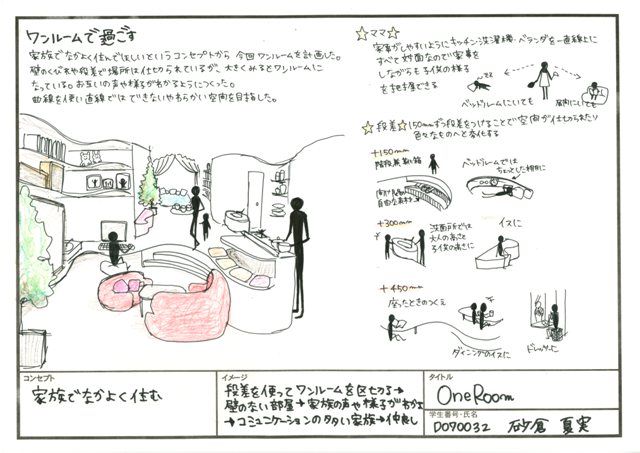 ワンルームで過ごす
家族でなかよく住んでほしいというコンセプトから今回ワンルームを計画した。
壁のくぼみや段差で場所は仕切られているが、大きくみるとワンルームに
なっている。お互いの声や様子がわかるようにつくった。
曲線を使い直線ではできないやわらかい空間を目指した。
☆ママ☆
家事がしやすいようにキッチン・洗濯機・ベランダを一直線上に
すべて対面なので家事を
しながらも子供の様子
を把握できる
ベッドルームにいても
居間にいても
☆段差☆150mmずつ段差をつけることで空間が仕切られたり
色々なものへと変化する
+150mm
ベッドルームでは
ちょっとした棚に
+300mm
洗面所では
大人の高さと
子供の高さに
イスに
+450mm
座ったときのつくえ
ダイニングのイスに
ドレッサーに
コンセプト
家族でなかよく住む
イメージ
段差を使ってワンルームを区切る→
壁のない部屋→家族の声や様子がわかる
→コミュニケーションの多い家族→仲良し
タイトル
OneRoom
学生番号・氏名
D070032 砂倉 夏実